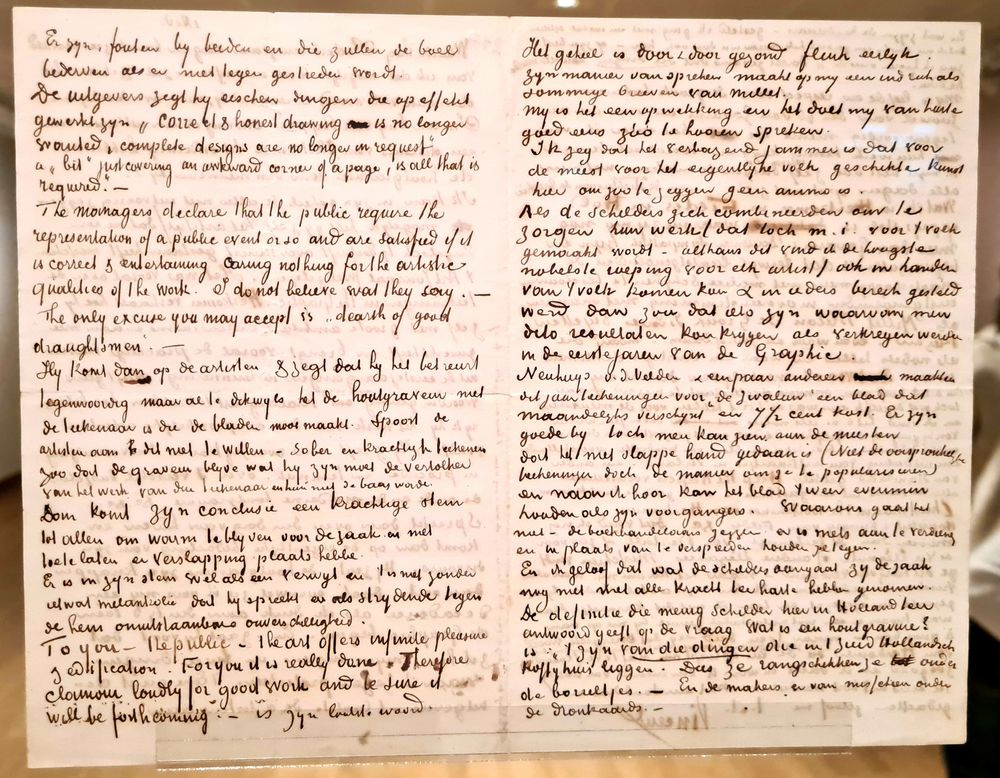 Er zyn fouten by beiden en die zullen de boel
bederven als er niet tegen gestreden wordt.
De uitgevers zegt hy eischen dingen die op effekt
gewerkt zyn „correct & honest drawing is no longer
wanted, complete designs are no longer in request"
a „bit" just covering an awkward corner of a page, is all that is
required." —
The managers declare that the public require the
representation of a public event or so and are satisfied if it
is correct & entertaining caring nothing for the artistic
qualities of the work. I do not believe wat they say. —
The only excuse you may accept is „dearth of good
draughtsmen". —
Hy komt dan op de artisten & zegt dat hy het betreurt
tegenwoordig maar al te dikwyls het de houtgraveur niet
de teekenaar is die de bladen mooi maakt. Spoort de
artisten aan dit niet te willen – sober en krachtig teekenen
zoo dat de graveur blyve wat hy zyn moet de vertolker
van het werk van den teekenaar en hem niet de baas worde.
Dan komt zyn conclusie een krachtige stem
tot allen om warm te blyven voor de zaak en niet
toe te laten er verslapping plaats hebbe.
Er is in zyn stem wel als een verwyt en 't is niet zonder
ietwat melankolie dat hy spreekt en als strydende tegen
de hem onuitstaanbare onverschilligheid.
To you – the public – the art offers infinite pleasure
& edification. For you it is really done. Therefore
clamour loudly for good work and be sure it
will be forthcoming. — is zyn laatste woord.
Het geheel is door & door gezond flink eerlyk.
zyn manier van spreken maakt op my een indruk als
sommige brieven van millet.
my is het een opwekking en het doet my van harte
goed eens zoo te hooren spreken.
Ik zeg dat het verbazend jammer is dat voor
de meest voor het eigentlyke volk geschikte kunst
hier om zoo te zeggen geen animo is.
Als de schilders zich combineerden om te
zorgen hun werk/ dat toch m.i. voor 't volk
gemaakt wordt – althans dit vind ik de hoogste
nobelste roeping voor elk artist/ ook in handen
van 't volk komen kon & in ieders bereik gesteld
werd dan zou dat iets zyn waarvan men
dito resultaten kon krygen als verkregen werden
in de eerste jaren van de Graphic.
Neuhuys v.d. Velden & een paar anderen maakten
dit jaar teekeningen voor „de zwaluw" een blad dat
maandelyks verschynt en 7½ cent kost. Er zyn
goede by toch men kan zien aan de meesten
dat het met slappe hand gedaan is (Niet de oorspronkelyke
teekeningen doch de manier om ze te populariseeren)
en naar ik hoor kan het blad 't weer evenmin
houden als zyn voorgangers. Waarom gaat het
niet – de boekhandelaars zeggen er is niets aan te verdienen
en in plaats van te verspreiden houden ze tegen.
En ik geloof dat wat de schilders aangaat zy de zaak
nog niet met alle kracht ter harte hebben genomen.
De definitie die menig schilder hier in Holland ten
antwoord geeft op de vraag wat is een houtgravure?
is: 't zyn van die dingen die in 't Zuid Hollandsch
koffyhuis liggen. Dus ze rangschikken ze onder
de borreltjes. — En de makers er van misschien onder
de dronkaards. —
Vincent